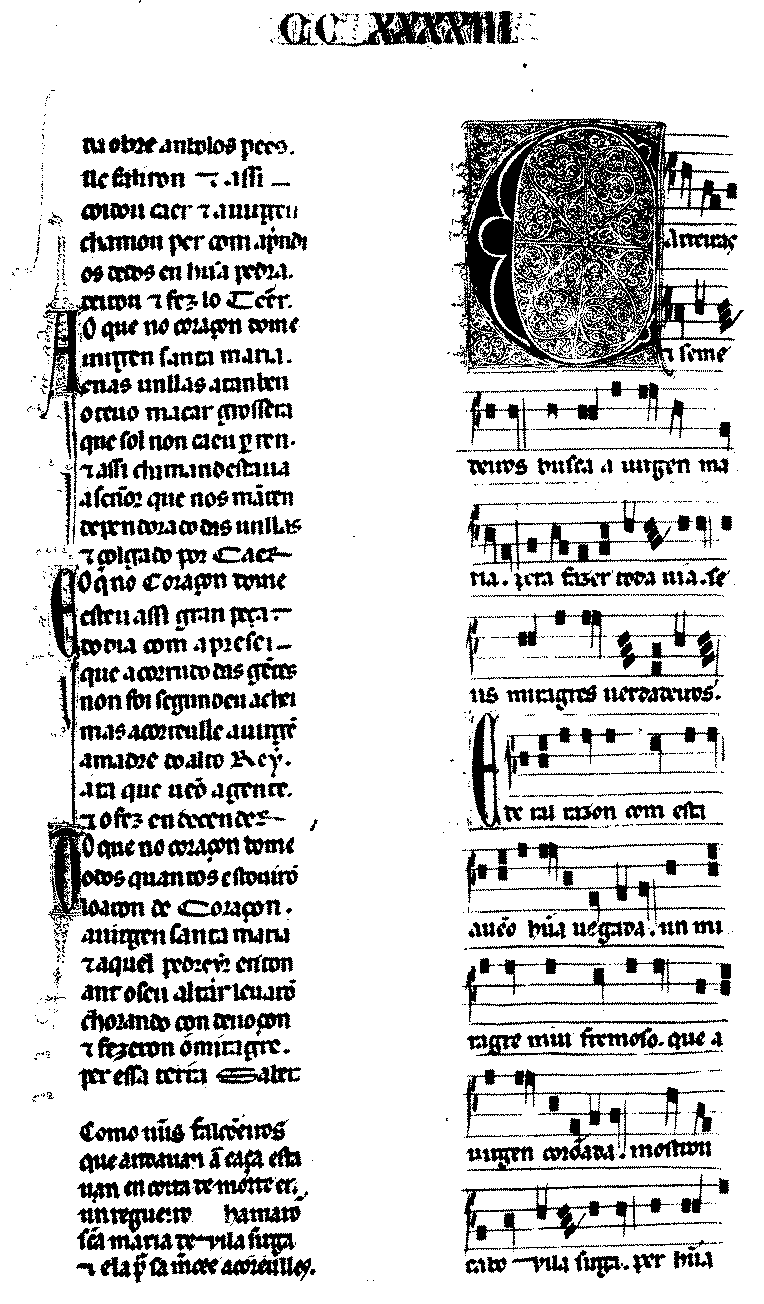 CCXXXXIII
tu obre and olos pees.
lle faliron ⁊ assi
ouvon caer ⁊ a uirgen
chamou per com aprendi
os dedos en hũa pedra.
teuron ⁊ fez lo Tẽer.
O que no coraçon dome
uirgen santa maria.
enas unllas atan ben
o teuo macar grosseira
que sol non caeu per ren.
⁊ assi chamand estaua
a sẽnor que nos mãten
dependorado das unllas
⁊ colgado por Caer
O q̃ no Coraçon dome
esteu assi gran peça
do dia com apresei
que acorrudo das gẽtes
non foi segund eu achei
mas acorreulle a uirgẽ
a madre do alto Rey.
ata que uẽo a gente.
⁊ o fez en decender
O que no coraçon dome
odos quantos est ouirõ
loaron de Coraçon.
a uirgen santa maria
⁊ aquel pedreir enton
ant o seu altar leuarõ
chorando con deuoçon
⁊ fezeron o miragre.
per essa terra Saber
Como uũs falcõeiros
que andauan a caça esta
uan en coita de morte en
un regueiro hamarõ
sc̃a maria de uila sirga
⁊ ela per sa m̃cee acorreulles.
arreiras
a seme
deiros busca a uirgen ma
ria. pera fazer toda uia. se
us miragres uerdadeiros.
E de tal razon com esta
auẽo hũa uegada. un mi
ragre mui fremoso. que a
uirgen corõada. mostrou
cabo uila sirga. per hũa